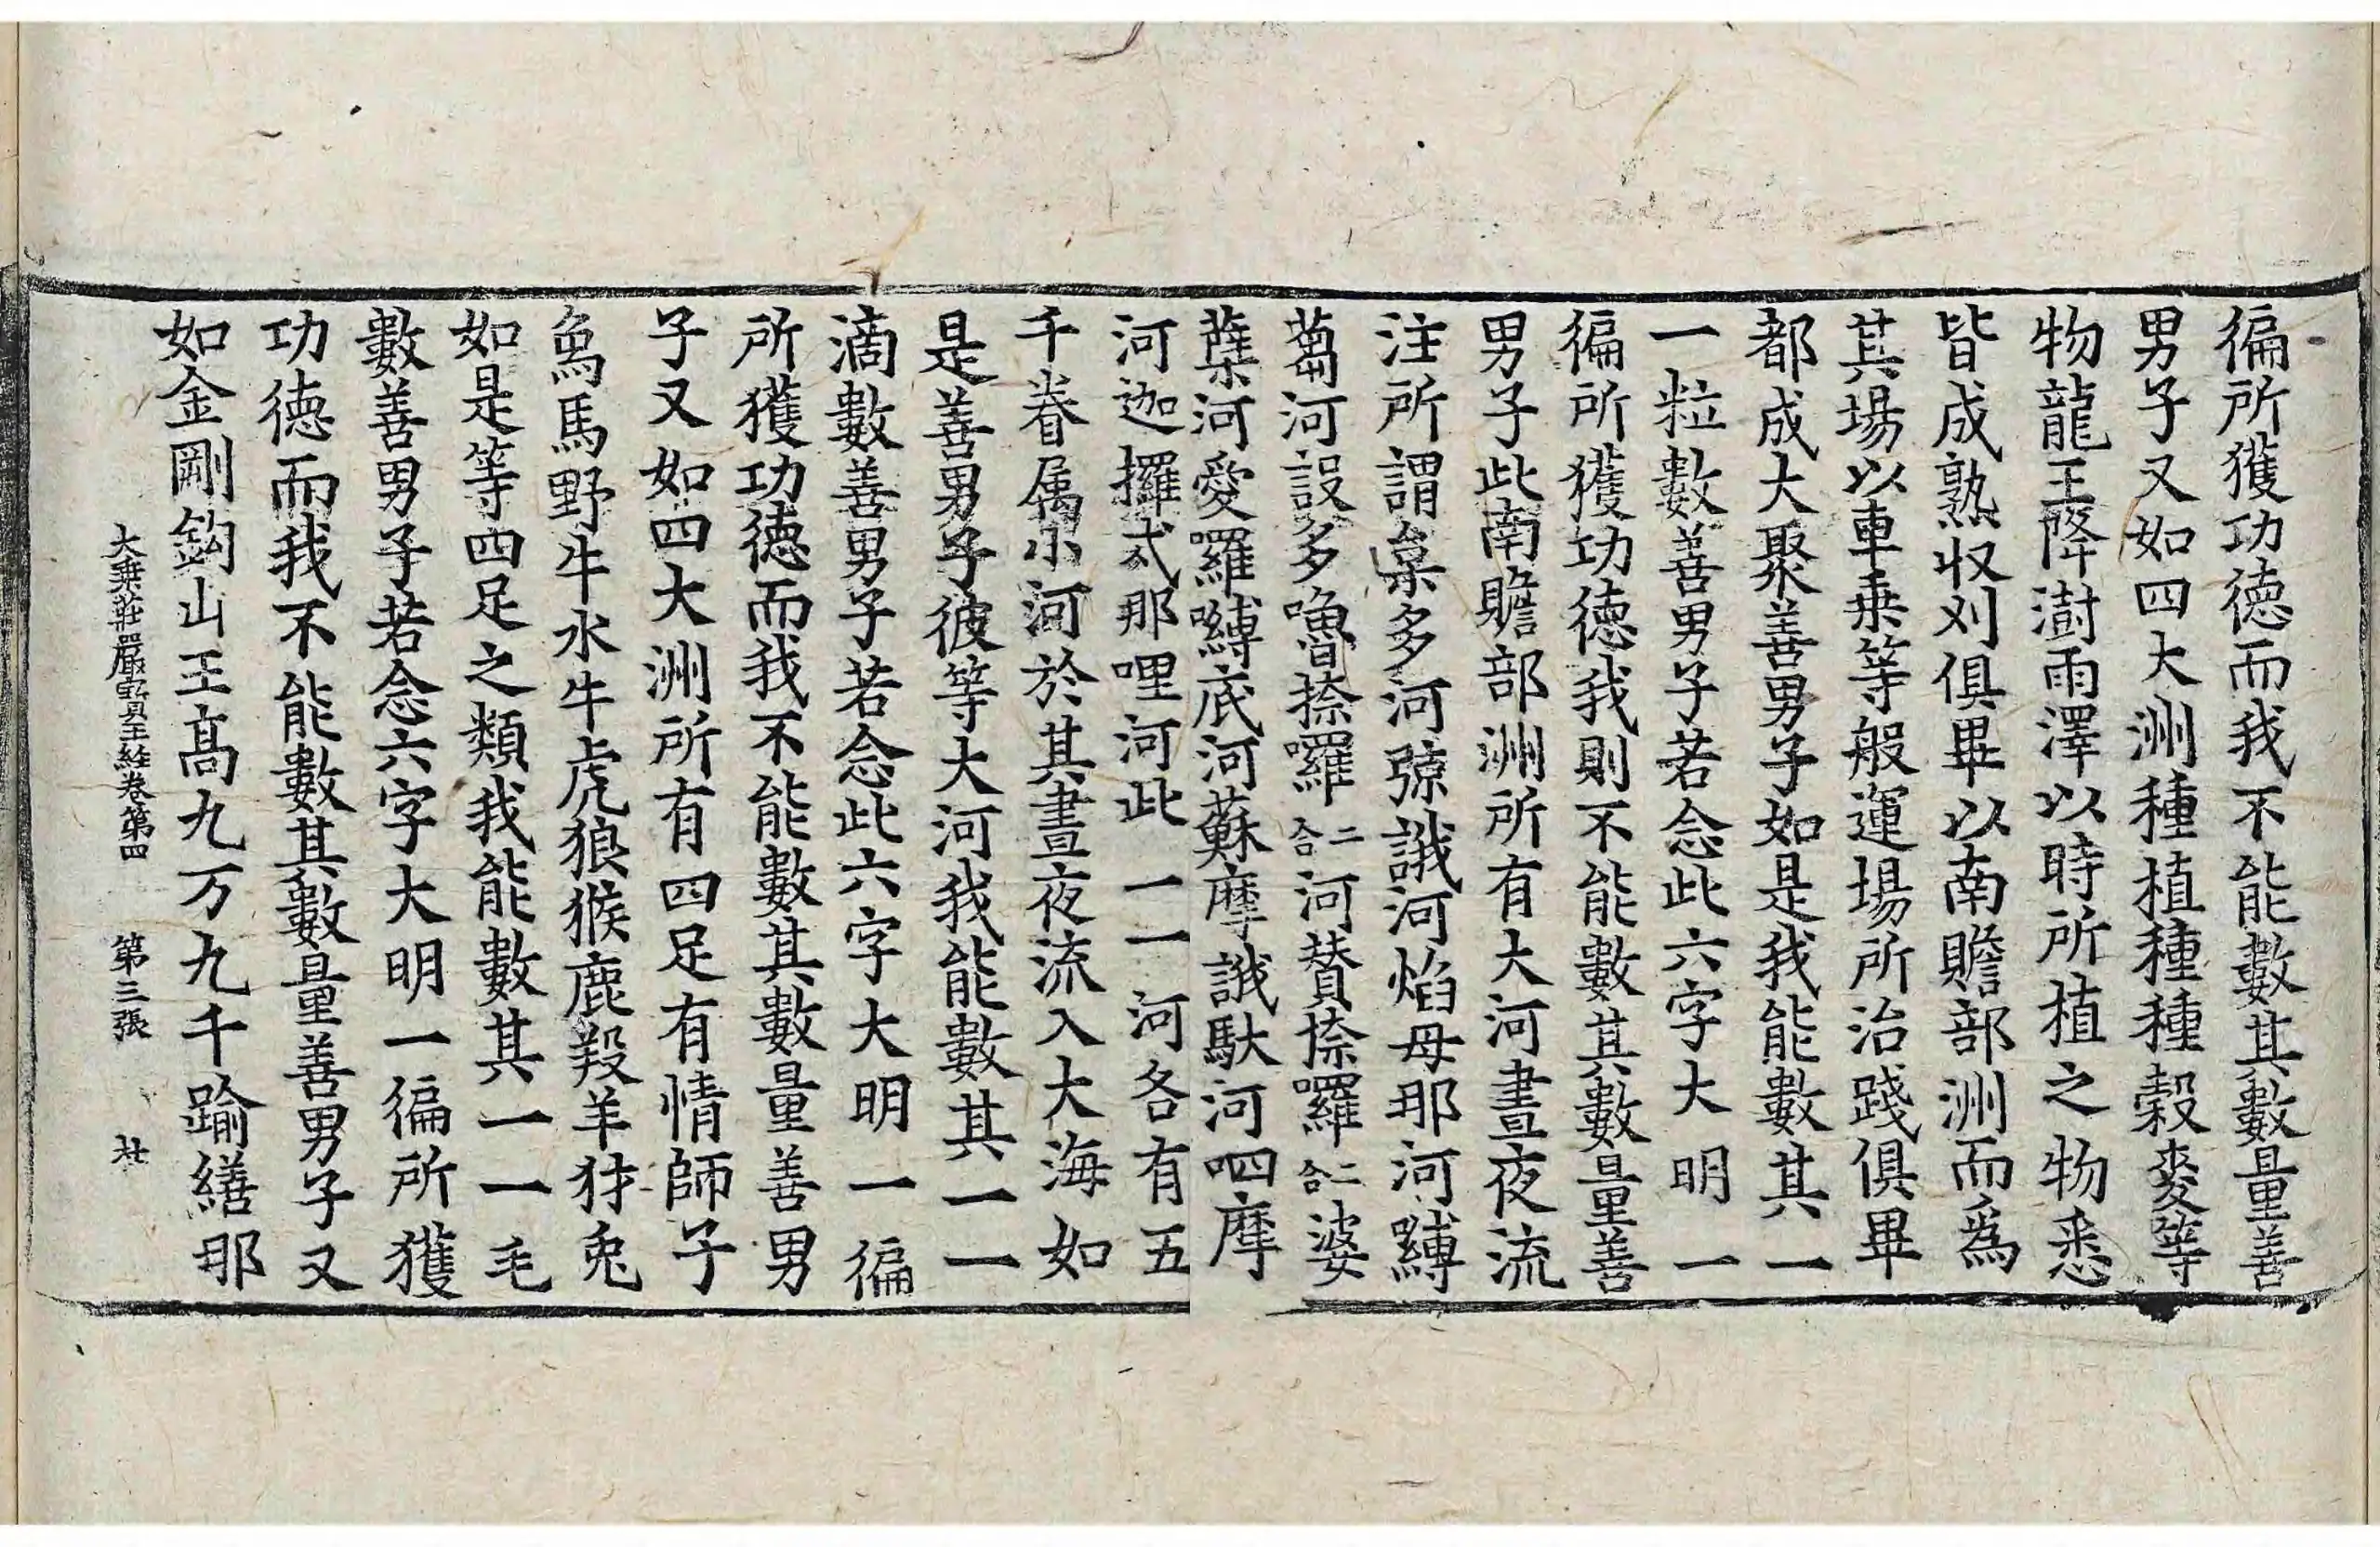 徧所獲功德而我不能數其數量善
男子又如四大洲種植種種穀麥等
物龍王降澍雨澤以時所植之物悉
皆成熟収刈俱畢以南贍部洲而為
其場以車乗等般運場所治踐俱畢
都成大聚善男子如是我能數其一
一粒數善男子若念此六字大明一
徧所獲功德我則不能數其數量善
男子此南贍部洲所有大河晝夜流
注所謂枲多河弶誐河焰母那河嚩
蒭河設多嚕捺囉二合河賛捺囉二合婆
蘖河愛囉嚩底河蘇摩誐馱河呬摩
河迦攞戍那哩河此一一河各有五
千眷属小河於其晝夜流入大海如
是善男子彼等大河我能數其一一
滴數善男子若念此六字大明一徧
所獲功德而我不能數其數量善男
子又如四大洲所有四足有情師子
象馬野牛水牛虎狼猴鹿羖羊犲兎
如是等四足之類我能數其一一毛
數善男子若念六字大明一徧所獲
功德而我不能數其數量善男子又
如金剛鈎山王髙九万九千踰繕那
大乗莊嚴寳王経卷第四 第三張 社